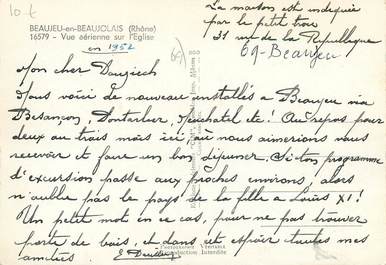 10 €
BEAUJEU-en-BEAUJOLAIS (Rhône)
16579 - Vue aérienne sur l'Eglise
en 1952
La maison est indiquée
par le petit trou
31 rue de la République
69-Beaujeu
Mon cher
Nous voici de nouveau installés à Beaujeu via
Besançon, Pontarlier, Neuchatel etc! Au repos pour
deux ou trois mois ici, où nous aimerions vous
recevoir et faire un bon déjeuner. Si ton programme
d'excursion passe aux proches environs, alors
n'oublie pas le pays de la fille à Louis XI!
Un petit mot en ce cas, pour ne pas trouver
porte de bois, et dans cet espoir toutes mes
amitiés
Photographie Véritable
Reproduction Interdite